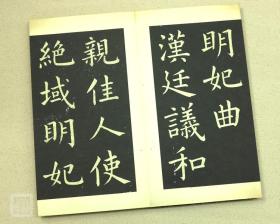 明妃曲
漢廷議和
親佳人使
絕域明妃